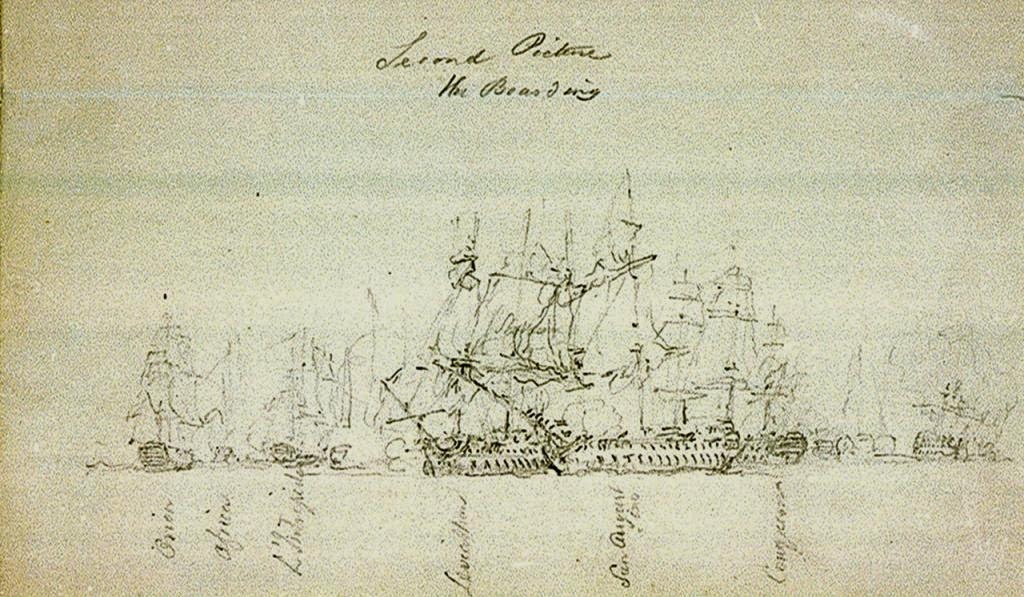 Second Picture
the Boarding
Orion
Africa
Leviathan
San August
ino
Conqueror